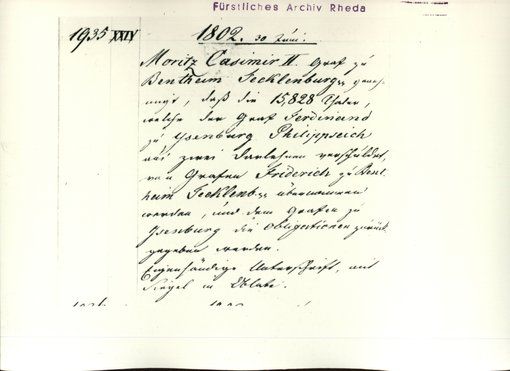 Fürstliches Archiv Rheda
1935 XXIV 1802. 30 Juni.
Moritz Casimir II. Graf zu
Bentheim Tecklenburg geneh-
migt, daß die 15,828 Thaler,
welche der Graf Ferdinand
zu Ysenburg Philippseich
aus zwei Darlehnen verschuldet,
von Grafen Friderich zu Bent-
heim Tecklenb. übernommen
werden, und dem Grafen zu
Ysenburg die Obligationen zurück
gegeben werden.
Eigenhändige Unterschrift, mit
Siegel in Oblate.